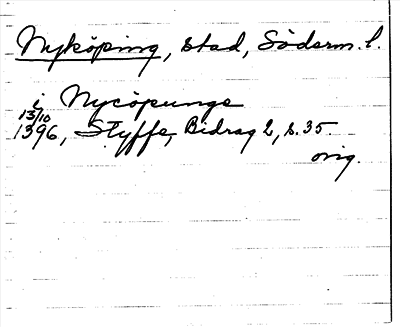 Nyköping, stad, Söderm. l.
i Nycöpunge
13/10
1396, Styffe, Bidrag 2, s. 35.
orig.